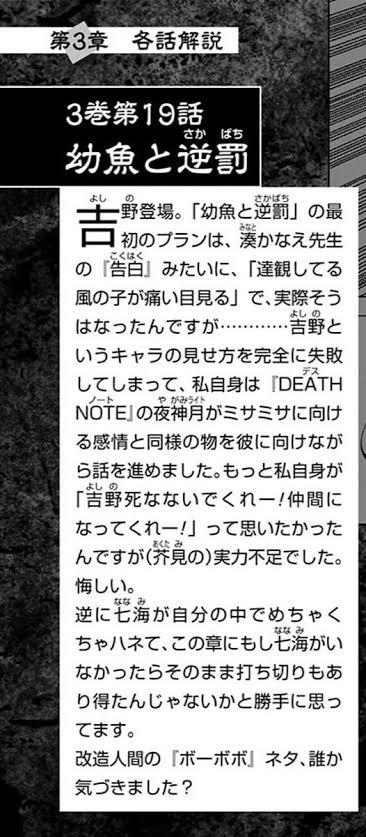 第3章 各話解説
3巻第19話
幼魚と逆罰
吉野登場。「幼魚と逆罰」の最
初のプランは、湊かなえ先生
の『告白』みたいに、「達観してる
風の子が痛い目見る」で、実際そう
はなったんですが…………吉野と
いうキャラの見せ方を完全に失敗
してしまって、私自身は『DEATH
NOTE』の夜神月がミサミサに向け
る感情と同様の物を彼に向けなが
ら話を進めました。もっと私自身が
「吉野死なないでくれー!仲間に
なってくれー!」って思いたかった
んですが(芥見の)実力不足でした。
悔しい。
逆に七海が自分の中でめちゃく
ちゃハネて、この章にもし七海がい
なかったらそのまま打ち切りもあ
り得たんじゃないかと勝手に思っ
てます。
改造人間の『ボーボボ』ネタ、誰か
気づきました?